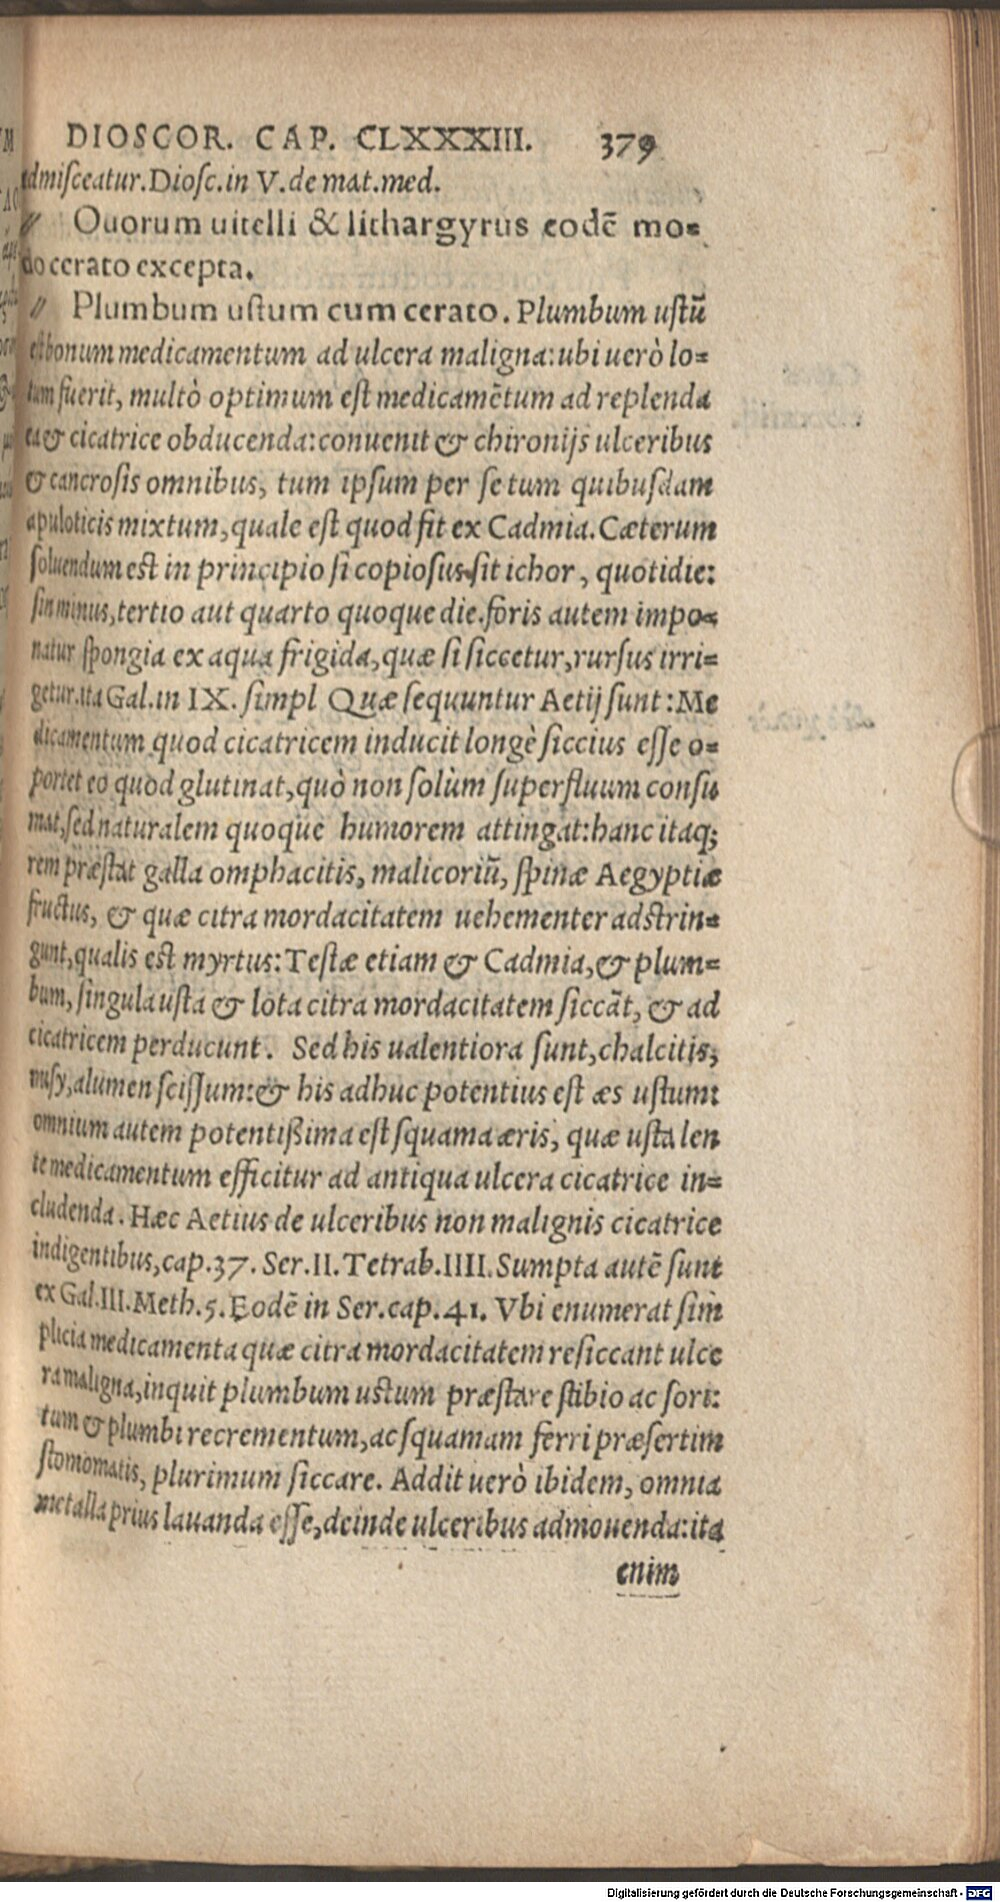 DIOSCOR. CAP. CLXXXIII. 379
admisceatur. Diosc. in V. de mat. med.
// Ouorum uitelli & lithargyrus eodē mo-
do cerato excepta.
// Plumbum ustum cum cerato. Plumbum ustū
est bonum medicamentum ad ulcera maligna: ubi uerò lo-
tum fuerit, multò optimum est medicamētum ad replenda
ea & cicatrice obducenda: conuenit & chironijs ulceribus
& cancrosis omnibus, tum ipsum per se tum quibusdam
apuloticis mixtum, quale est quod fit ex Cadmia. Cæterum
soluendum est in principio si copiosus sit ichor, quotidie:
sin minus, tertio aut quarto quoque die. foris autem impo-
natur spongia ex aqua frigida, quæ si siccetur, rursus irri-
getur. ita Gal. in IX. simpl Quæ sequuntur Aetij sunt: Me
dicamentum quod cicatricem inducit longè siccius esse o-
portet eo quod glutinat, quò non solùm superfluum consu
mat, sed naturalem quoque humorem attingat: hanc itaq;
rem præstat galla omphacitis, malicoriū, spinæ Aegyptiæ
fructus, & quæ citra mordacitatem uehementer adstrin-
gunt, qualis est myrtus: Testæ etiam & Cadmia, & plum-
bum, singula usta & lota citra mordacitatem siccāt, & ad
cicatricem perducunt. Sed his ualentiora sunt, chalcitis,
misy, alumen scissum: & his adhuc potentius est æs ustum:
omnium autem potentißima est squama æris, quæ usta len
te medicamentum efficitur ad antiqua ulcera cicatrice in-
cludenda. Hæc Aetius de ulceribus non malignis cicatrice
indigentibus, cap. 37. Ser. II. Tetrab. IIII. Sumpta autē sunt
ex Gal. III. Meth. 5. Eodē in Ser. cap. 41. Vbi enumerat sim
plicia medicamenta quæ citra mordacitatem resiccant ulce
ra maligna, inquit plumbum ustum præstare stibio ac sori:
tum & plumbi recrementum, ac squamam ferri præsertim
stomomatis, plurimum siccare. Addit uerò ibidem, omnia
metalla prius lauanda esse, deinde ulceribus admouenda: ita
enim
Digitalisierung gefördert durch die Deutsche Forschungsgemeinschaft - DFG